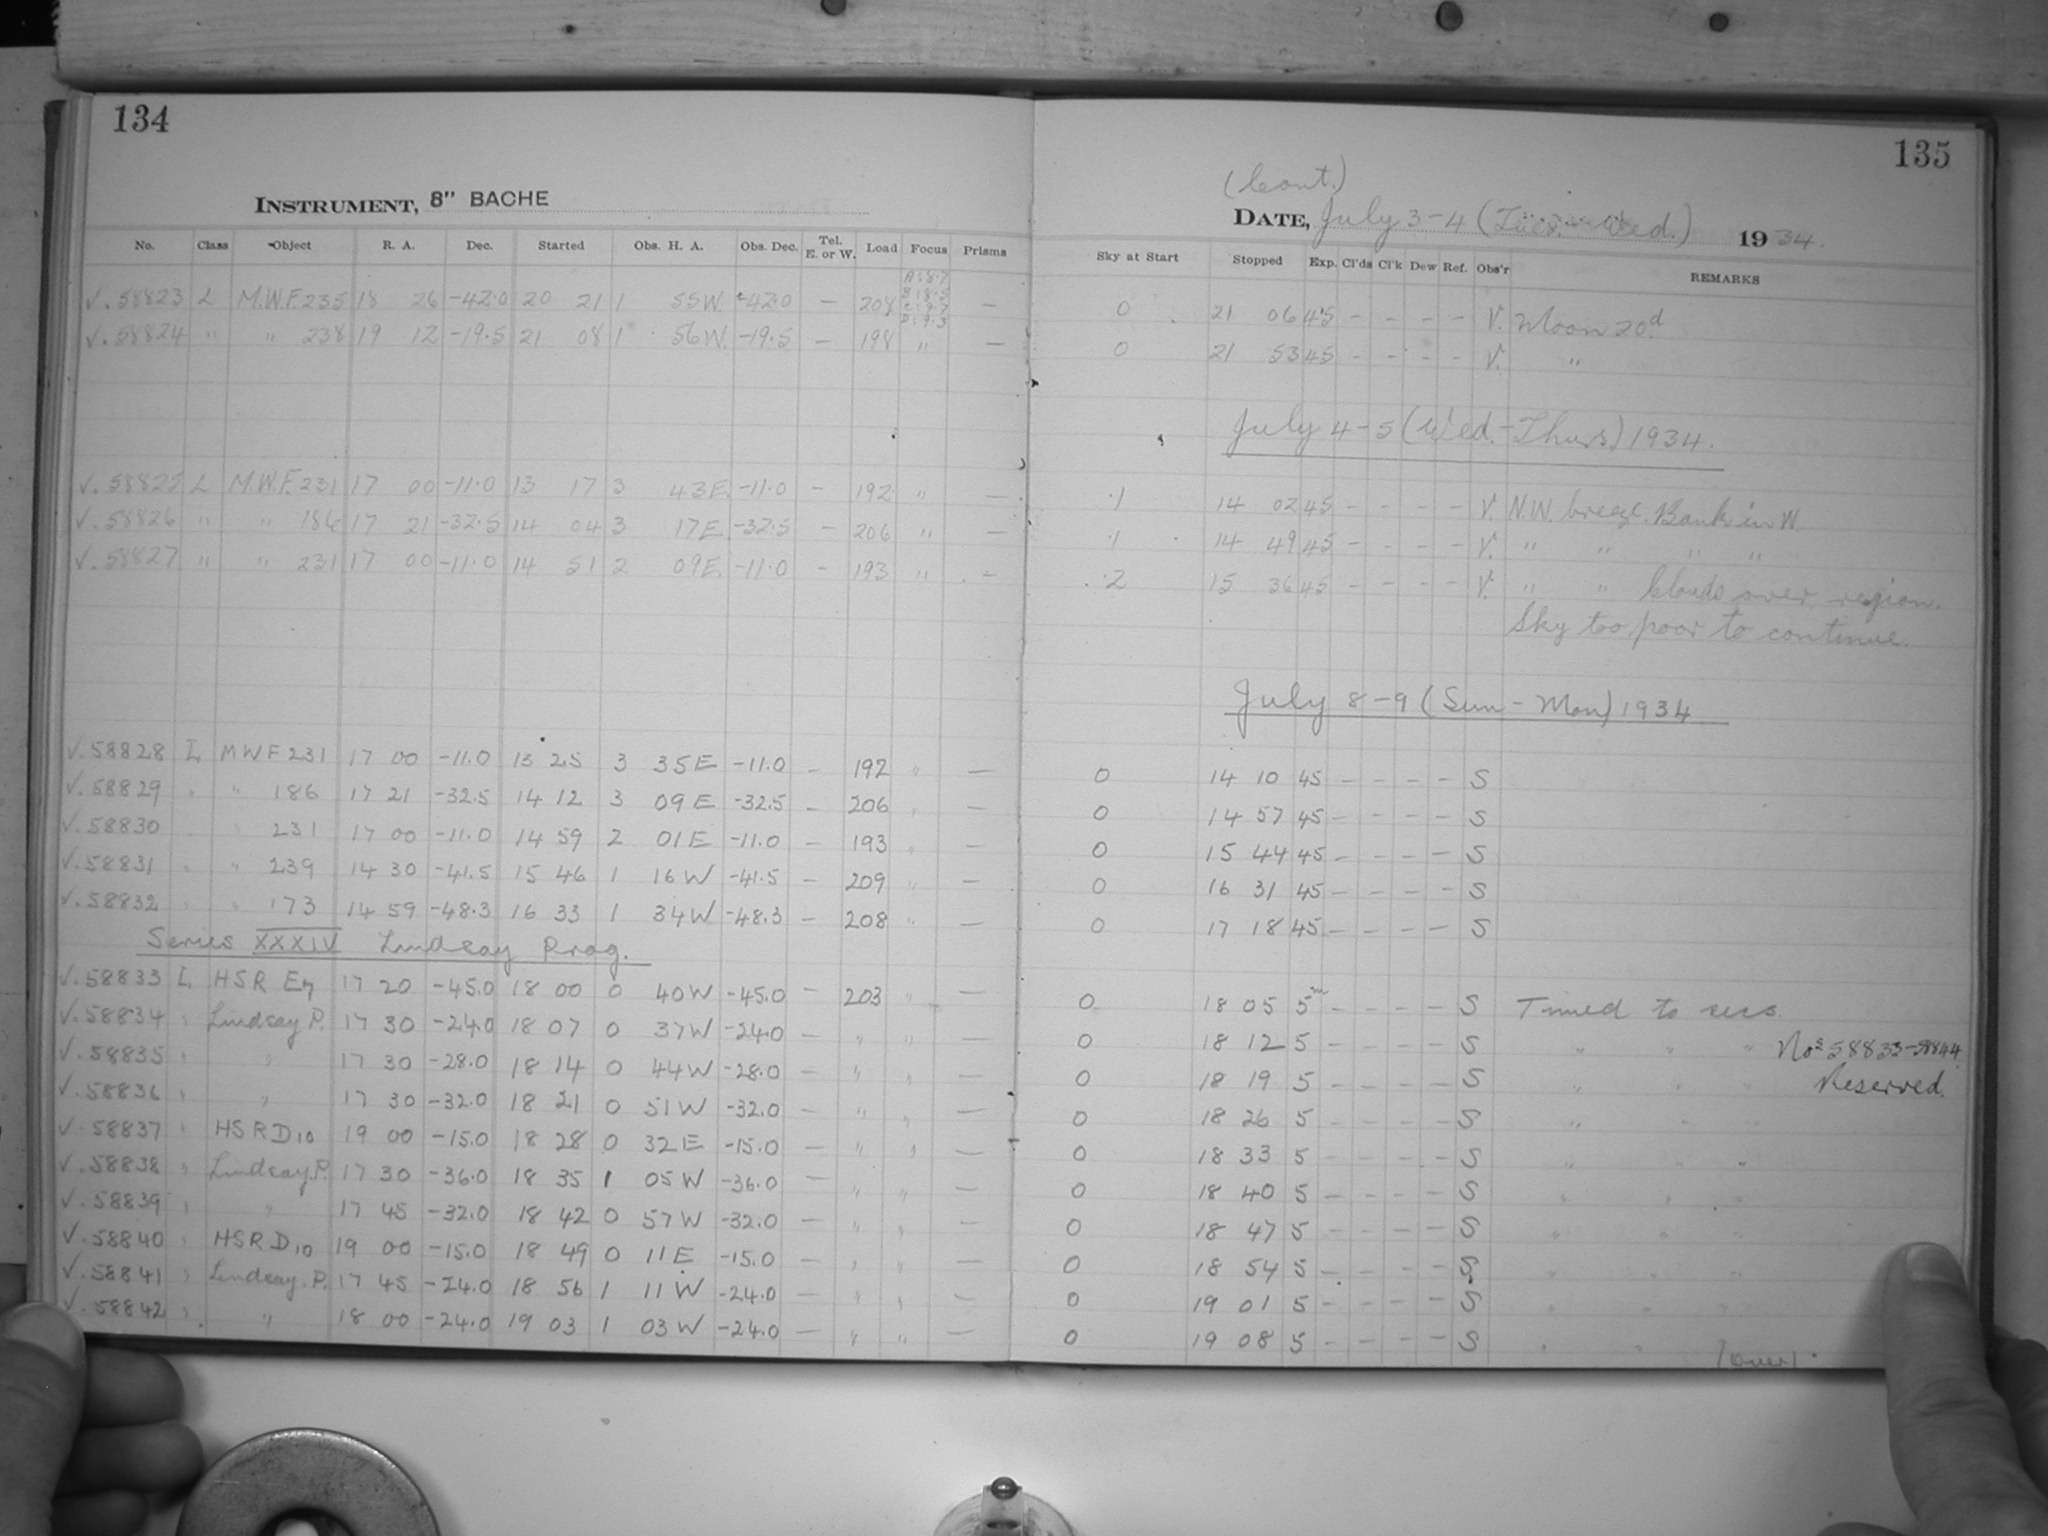 134
INSTRUMENT, 8" BACHE
No. Class Object R. A. Dec. Started Obs. H. A. Obs. Dec. Tel. E. or W. Load Focus Prisms
A:8.7
B:8.5
C:9.7
D:9.3
√.58823 L M.W.F.235 18 26 -42.0 20 21 1 55W. -42.0 — 208 —
√.58824 " " 238 19 12 -19.5 21 08 1 56W. -19.5 — 198 " —
√.58825 L M.W.F.231 17 00 -11.0 13 17 3 43E. -11.0 - 192 " —
√.58826 " " 186 17 21 -32.5 14 04 3 17E -32.5 — 206 " —
√.58827 " " 231 17 00 -11.0 14 51 2 09E -11.0 - 193 " —
√.58828 L MWF 231 17 00 -11.0 13 25 3 35E -11.0 — 192 " —
√.58829 " " 186 17 21 -32.5 14 12 3 09E -32.5 — 206 " —
√.58830 " " 231 17 00 -11.0 14 59 2 01E -11.0 — 193 " —
√.58831 " " 239 14 30 -41.5 15 46 1 16W -41.5 — 209 " —
√.58832 " " 173 14 59 -48.3 16 33 1 34W -48.3 — 208 " —
Series XXXIV Lindsay Prog.
√.58833 L HSR E7 17 20 -45.0 18 00 0 40W -45.0 — 203 " —
√.58834 " Lindsay P. 17 30 -24.0 18 07 0 37W -24.0 — " " —
√.58835 " " 17 30 -28.0 18 14 0 44W -28.0 — " " —
√.58836 " " 17 30 -32.0 18 21 0 51W -32.0 — " " —
√.58837 " HSR D10 19 00 -15.0 18 28 0 32E -15.0 — " " —
√.58838 " Lindsay.P. 17 30 -36.0 18 35 1 05W -36.0 — " " —
√.58839 " " 17 45 -32.0 18 42 0 57W -32.0 — " " —
√.58840 " HSR D10 19 00 -15.0 18 49 0 11E -15.0 — " " —
√.58841 " Lindsay.P. 17 45 -24.0 18 56 1 11W -24.0 — " " —
√.58842 " " 18 00 -24.0 19 03 1 03W -24.0 — " " —
135
(Cont.)
DATE, July 3-4 (Tues.-Wed.) 1934.
Sky at Start Stopped Exp. Cl'ds Cl'k Dew Ref. Obs'r REMARKS
0 21 06 45 - - - - V. Moon 20d
0 21 53 45 - - - - V. "
July 4-5 (Wed.-Thurs.) 1934.
.1 14 02 45 - - - - V. N.W. breeze. Bank in W.
.1 14 49 45 - - - - V. " " " "
.2 15 36 45 - - - - V. " " Clouds over region.
Sky too poor to continue.
July 8-9 (Sun-Mon) 1934
0 14 10 45 - - - - S
0 14 57 45 - - - - S
0 15 44 45 - - - - S
0 16 31 45 - - - - S
0 17 18 45 - - - - S
0 18 05 5m - - - - S Timed to secs.
0 18 12 5 - - - - S " " " Nos 58833-58844
0 18 19 5 - - - - S " " Reserved.
0 18 26 5 - - - - S " " "
0 18 33 5 - - - - S " " "
0 18 40 5 - - - - S " " "
0 18 47 5 - - - - S " " "
0 18 54 5 - - - - S " " "
0 19 01 5 - - - - S " " "
0 19 08 5 - - - - S " "
(over)